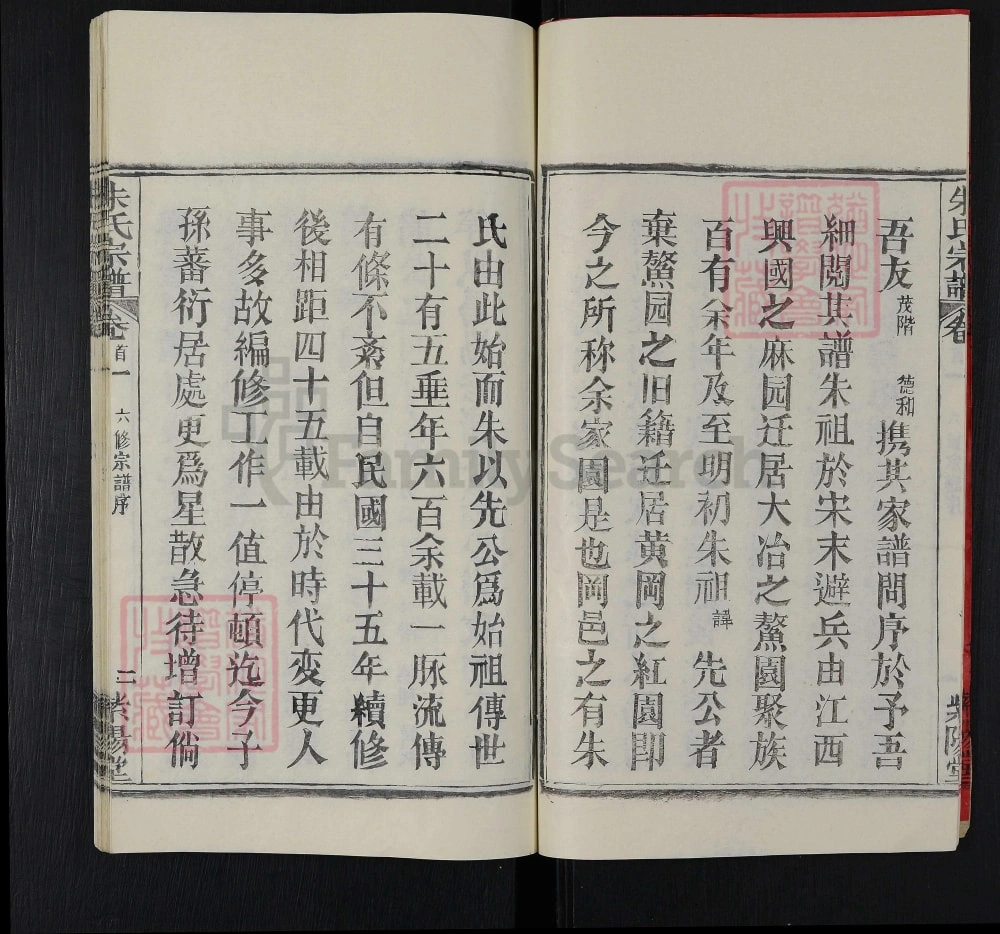 朱氏宗譜
紫陽堂
吾友茂階 德和携其家譜問序於予吾
細閱其譜朱祖於宋末避兵由江西
興國之麻园迁居大冶之鰲園聚族
百有余年及至明初朱祖諱先公者
棄鰲园之旧籍迁居黄岡之紅園即
今之所称余家園是也岡邑之有朱
氏由此始而朱以先公爲始祖傳世
二十有五垂年六百余載一脉流傳
有條不紊但自民國三十五年續修
後相距四十五載由於時代变更人
事多故編修工作一值停頓迄今子
孫蕃衍居處更爲星散急待增訂倘
朱氏宗譜
卷首一
六修宗譜序
二
紫陽堂
FamilySearch